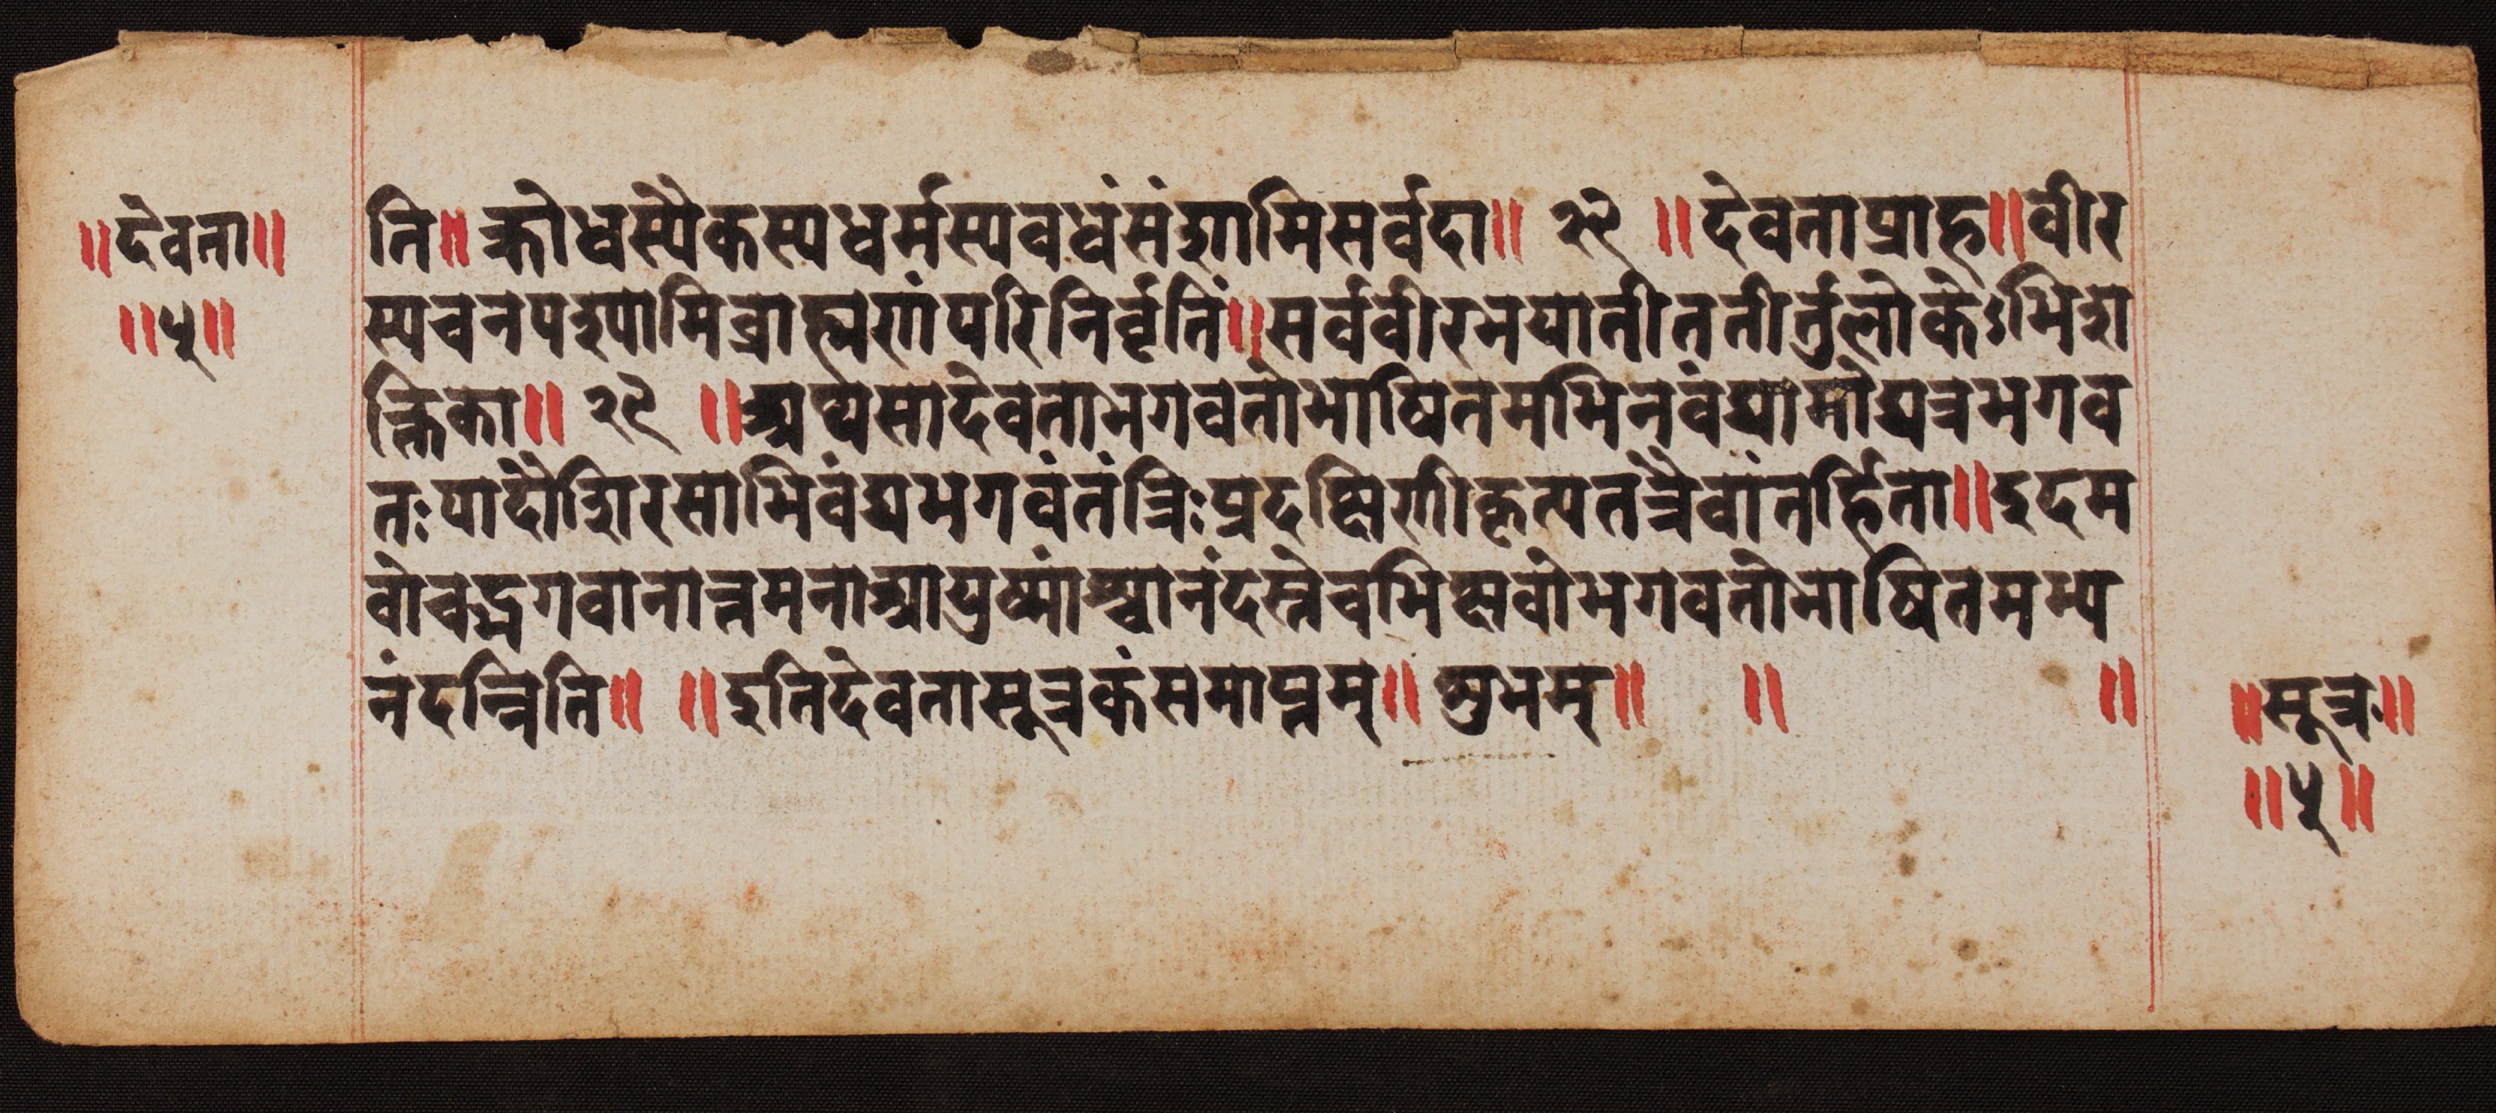 ॥देवता॥
॥५॥
ति॥क्रोधस्यैकस्यधर्मस्यवधंसंशामिसर्वदा॥ २८ ॥देवताप्राह॥वीर
स्यचनपश्यामिब्राह्मणंपरिनिर्वृतिं॥सर्ववीरभयातीततीर्त्तुलोकेऽभिशा
क्तिका॥ २९ ॥अथसादेवताभगवतोभाषितमभिनवंद्यामोद्यत्रभगव
तःपादौशिरसाभिवंद्यभगवंतंत्रिःप्रदक्षिणीकृत्यतत्रैवांतर्हिता॥इदम
वोचद्भगवानात्तमनाआयुष्मांश्चानंदस्तेचभिक्षवोभगवतोभाषितमभ्य
नंदन्निति॥ ॥इतिदेवतासूत्रकंसमाप्तम्॥शुभम्॥ ॥ ॥
॥सूत्र॥
॥५॥